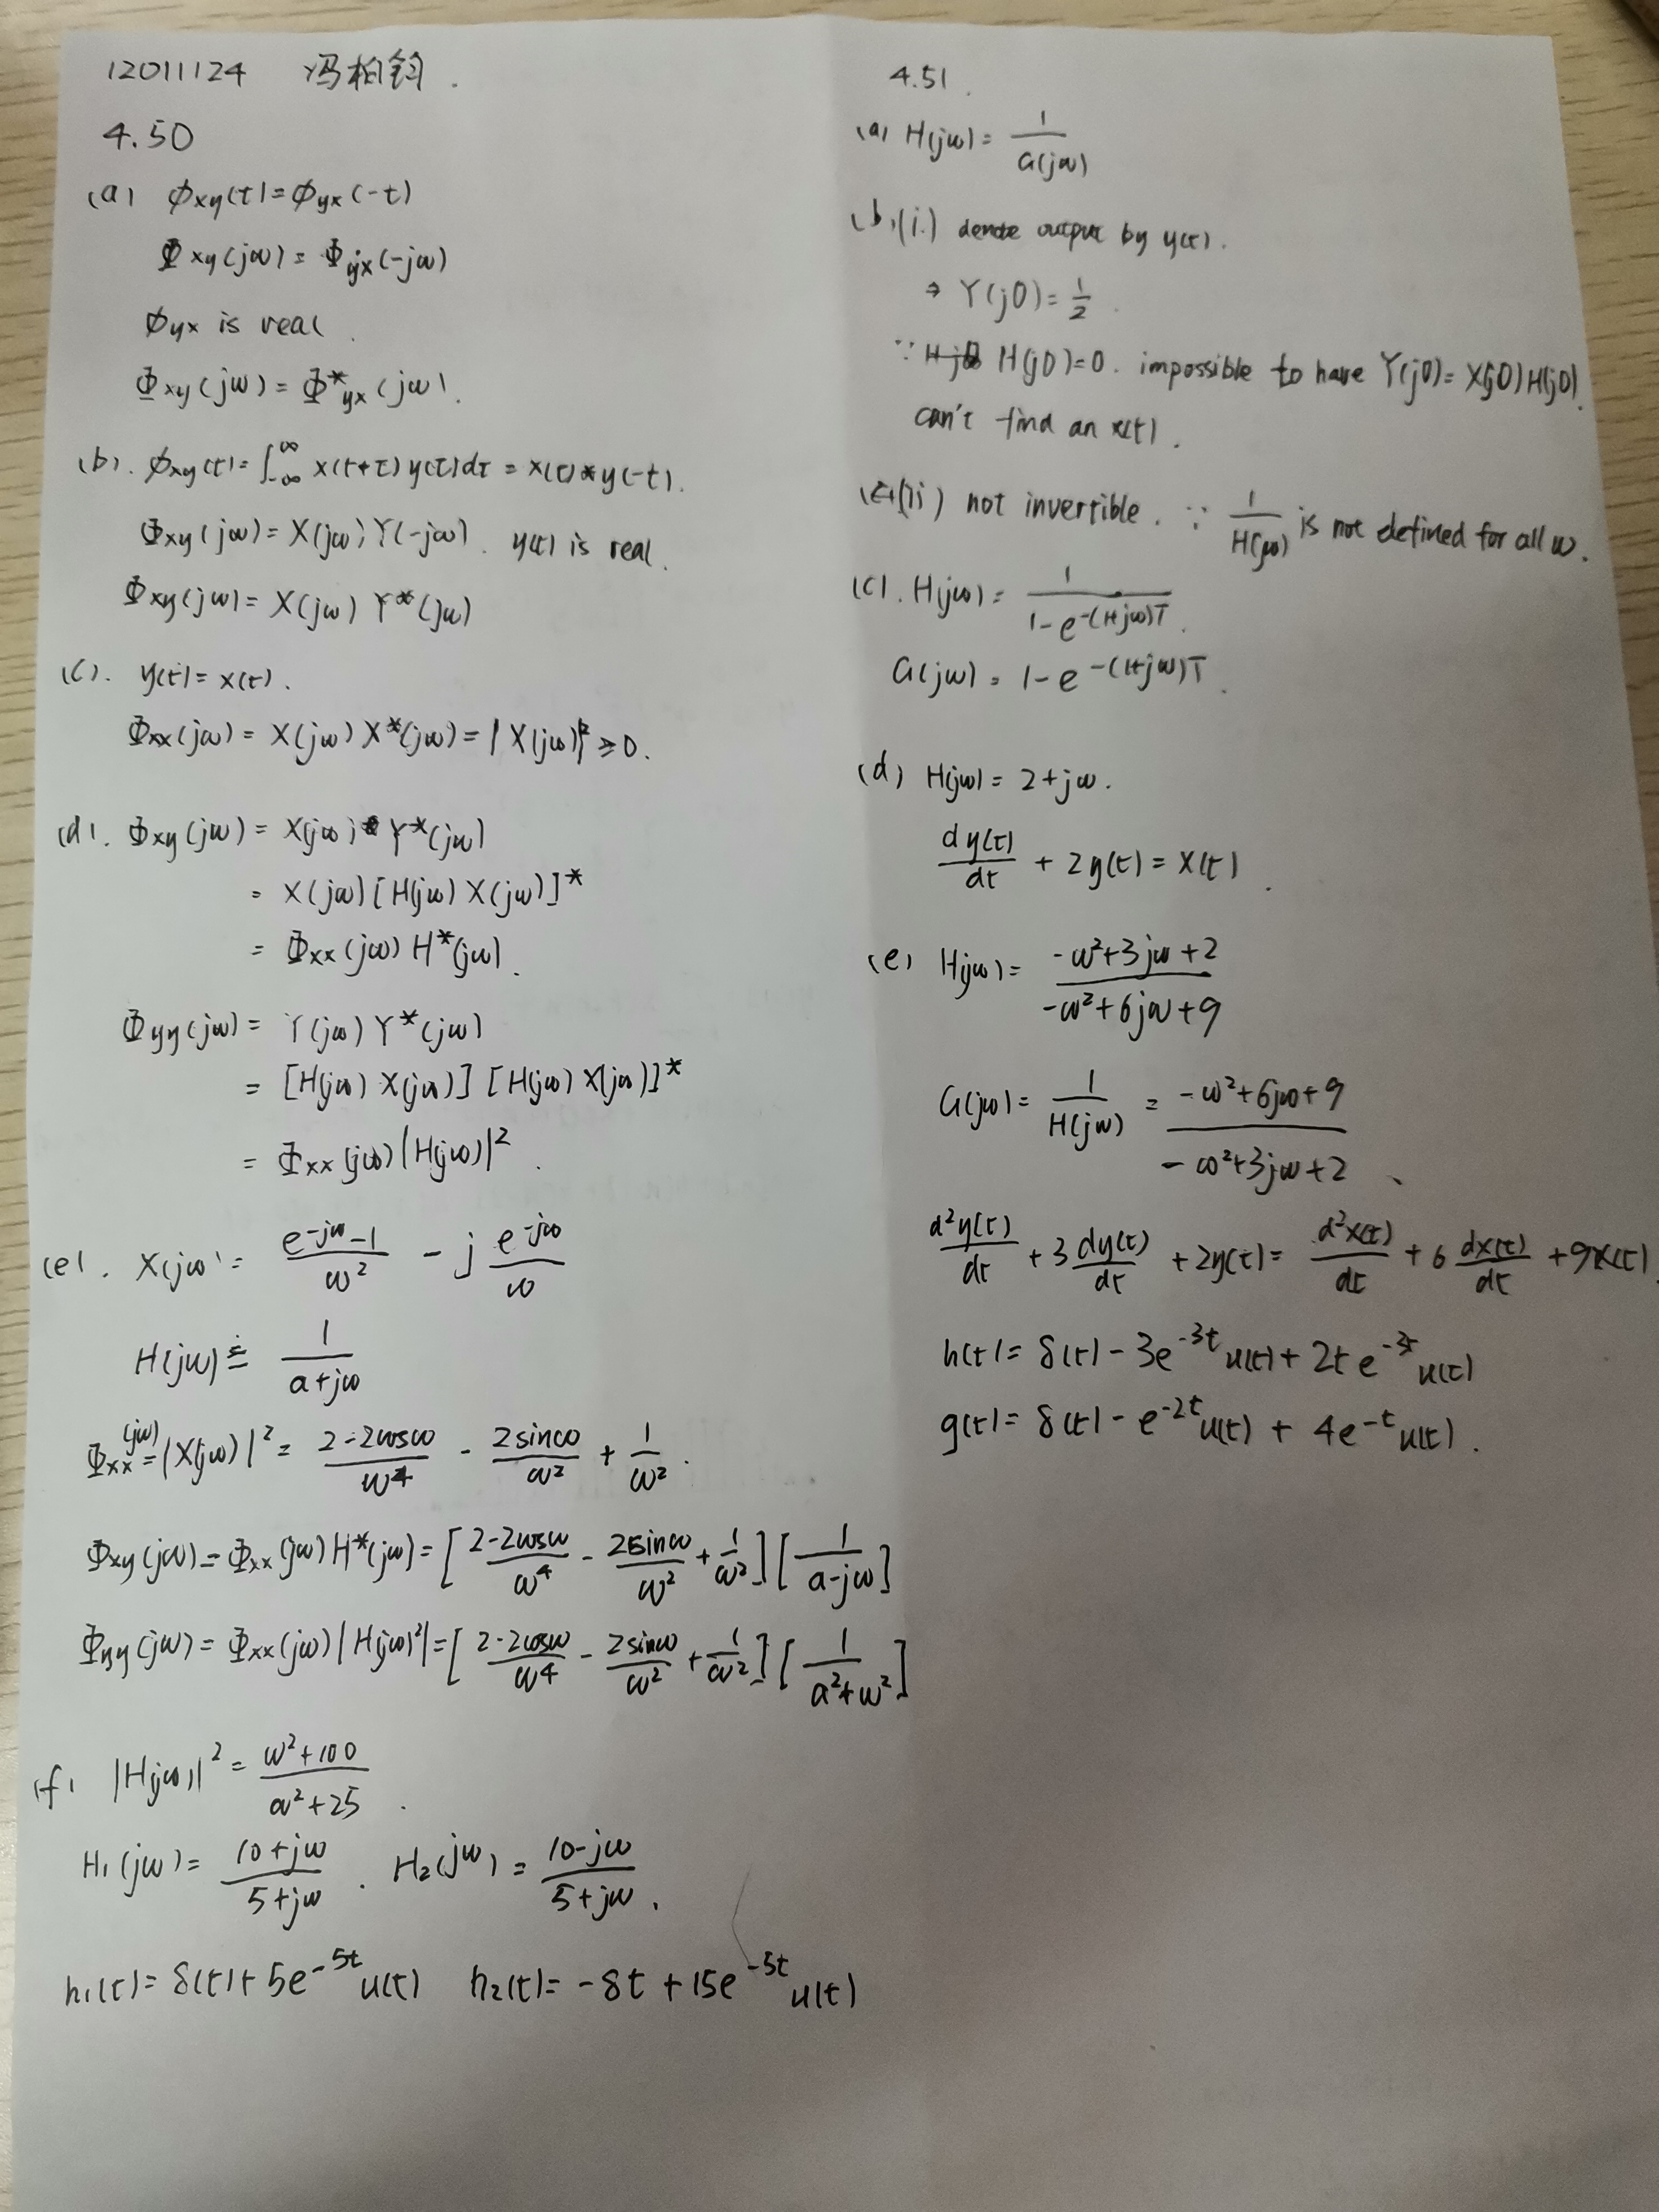 12011124 冯柏钧.
4.50
(a) ϕxy(t)=ϕyx(-t)
Φxy(jω)=Φyx(-jω)
ϕyx is real.
Φxy(jω)=Φ*yx(jω).
(b). ϕxy(t)=∫_{-∞}^{∞} x(t+τ)y(τ)dτ = x(t)*y(-t).
Φxy(jω)=X(jω)Y(-jω). y(t) is real.
Φxy(jω)=X(jω)Y*(jω)
(c). y(t)=x(t).
Φxx(jω)=X(jω)X*(jω)=|X(jω)|²≥0.
(d). Φxy(jω)=X(jω)Y*(jω)
=X(jω)[H(jω)X(jω)]*
=Φxx(jω)H*(jω).
Φyy(jω)=Y(jω)Y*(jω)
=[H(jω)X(jω)][H(jω)X(jω)]*
=Φxx(jω)|H(jω)|².
(e). X(jω)=(e^{-jω}-1)/ω² - j e^{-jω}/ω
H(jω)=1/(a+jω)
Φxx(jω)=|X(jω)|²=(2-2cosω)/ω⁴ - 2sinω/ω² + 1/ω².
Φxy(jω)=Φxx(jω)H*(jω)=[(2-2cosω)/ω⁴ - 2sinω/ω² + 1/ω²][1/(a-jω)]
Φyy(jω)=Φxx(jω)|H(jω)²|=[(2-2cosω)/ω⁴ - 2sinω/ω² + 1/ω²][1/(a²+ω²)]
(f) |H(jω)|²=(ω²+100)/(ω²+25).
H₁(jω)=(10+jω)/(5+jω). H₂(jω)=(10-jω)/(5+jω).
h₁(t)=δ(t)+5e^{-5t}u(t) h₂(t)=-δt+15e^{-5t}u(t)
4.51.
(a) H(jω)=1/G(jω)
(b)(i.) denote output by y(t).
⇒ Y(j0)=1/2.
∵ H(j0)=0. impossible to have Y(j0)=X(j0)H(j0).
can't find an x(t).
(ii) not invertible. ∵ 1/H(jω) is not defined for all ω.
(c). H(jω)=1/(1-e^{-(1+jω)T}).
G(jω)=1-e^{-(1+jω)T}.
(d) H(jω)=2+jω.
dy(t)/dt+2y(t)=x(t).
(e) H(jω)=(-ω²+3jω+2)/(-ω²+6jω+9)
G(jω)=1/H(jω)=(-ω²+6jω+9)/(-ω²+3jω+2).
d²y(t)/dt+3dy(t)/dt+2y(t)=d²x(t)/dt+6dx(t)/dt+9x(t)
h(t)=δ(t)-3e^{-3t}u(t)+2te^{-3t}u(t)
g(t)=δ(t)-e^{-2t}u(t)+4e^{-t}u(t).